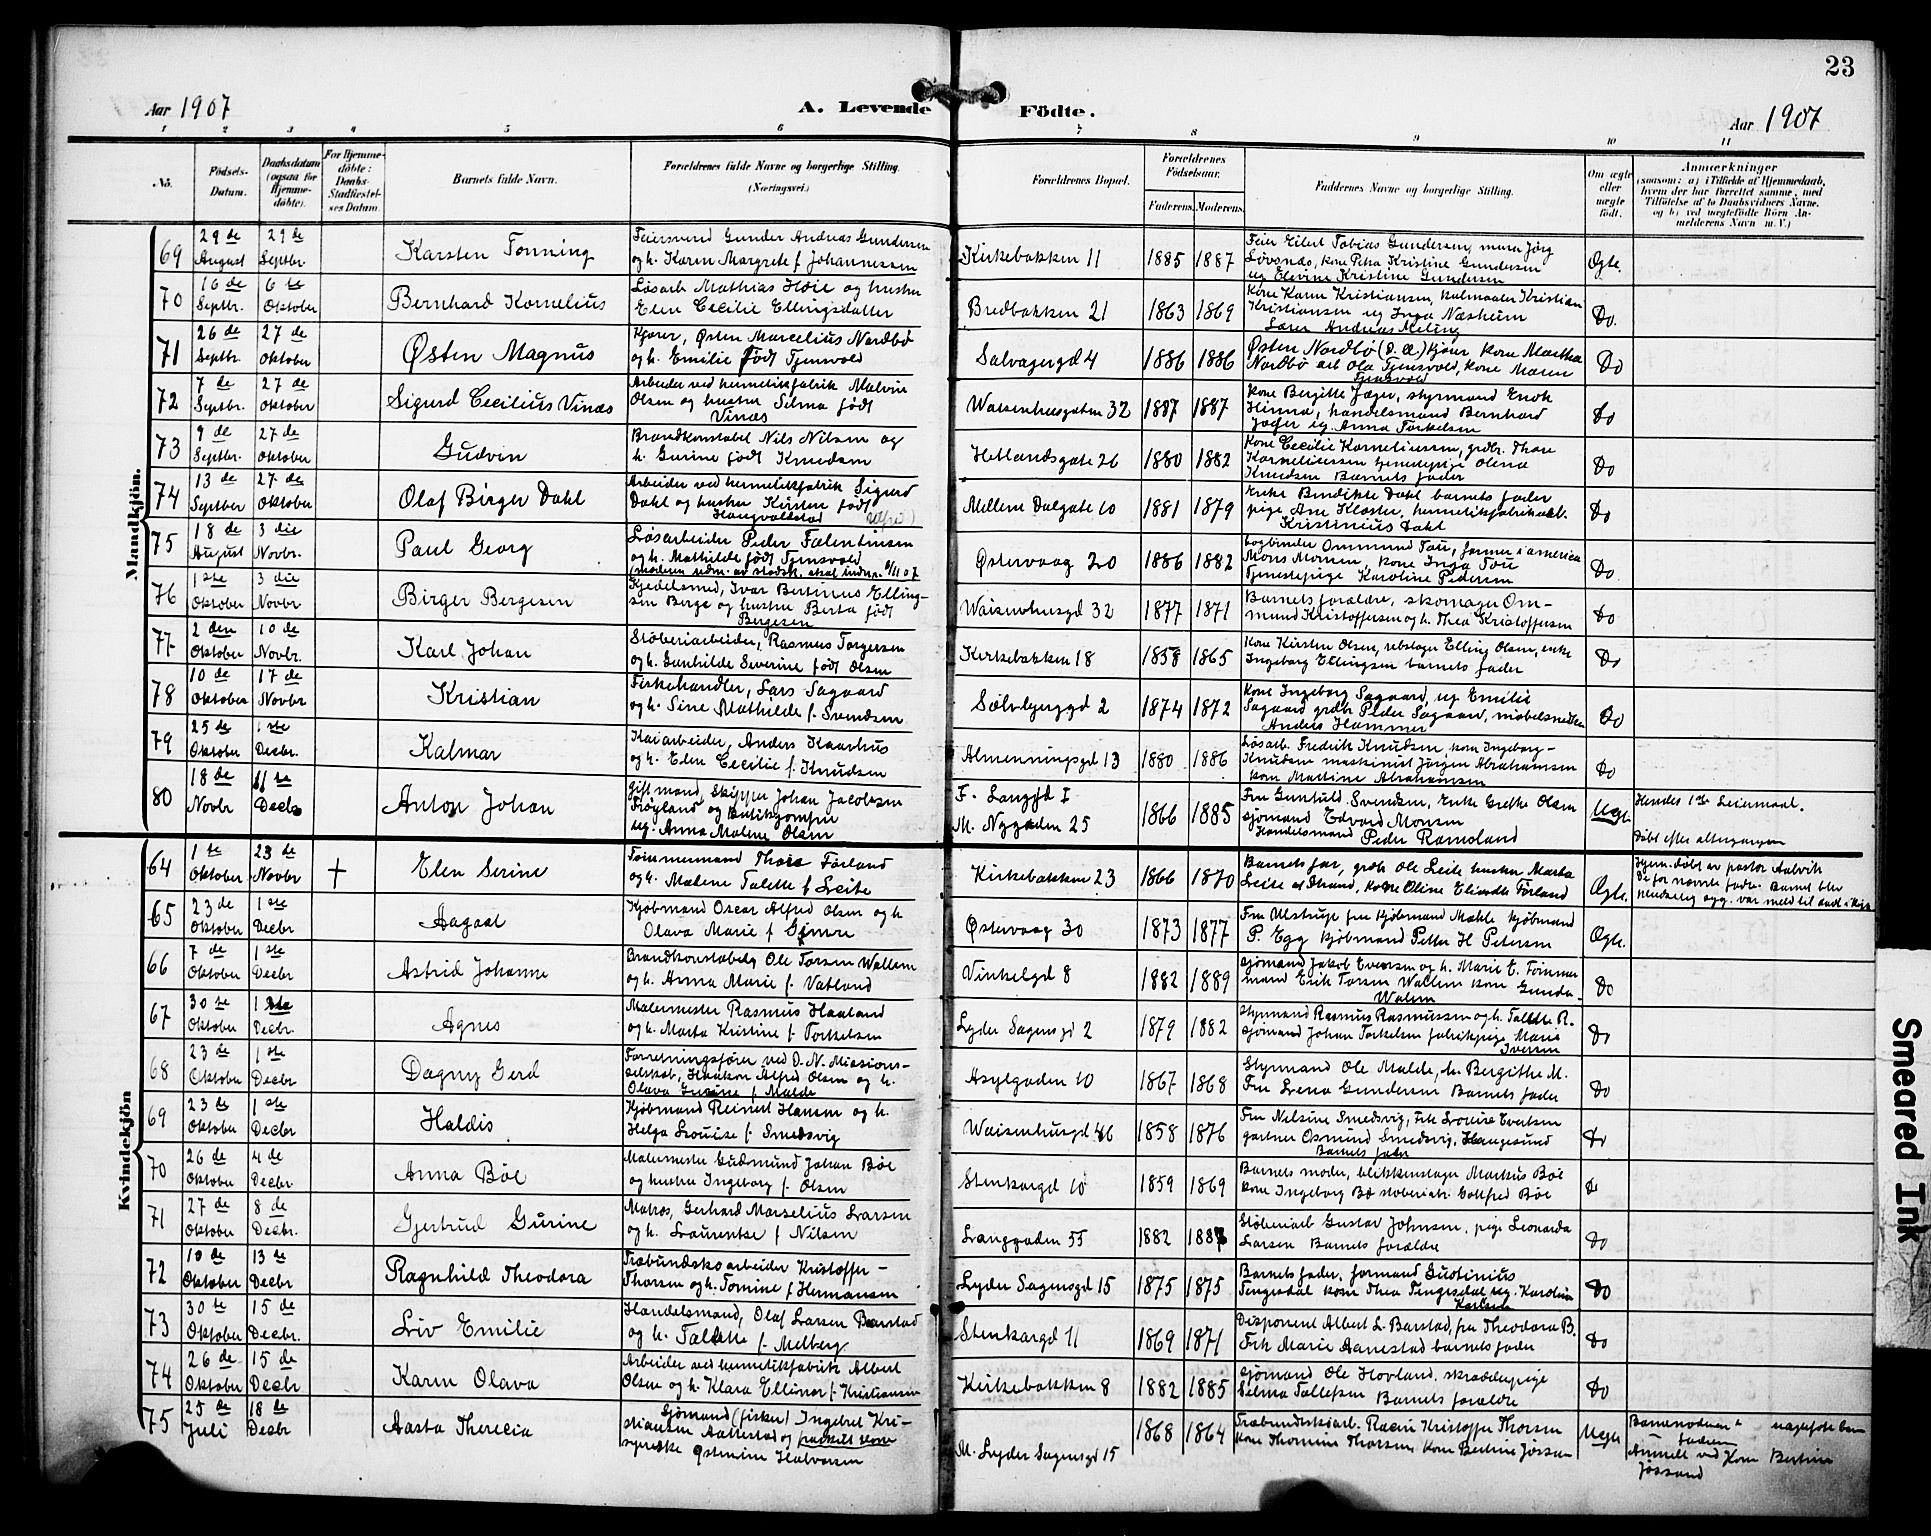 23
Aar 1907
A. Levende
Födte.
Aar 1907
1 2 3 4 5 6 7 8 9 10 11
No.
Fødsels-Datum.
Daabsdatum (ogsaa for Hjemme-döbte).
For Hjemme-döbte: Daabs-Stadfæstelses Datum
Barnets fulde Navn.
Forældrenes fulde Navne og borgerlige Stilling. (Næringsvei.)
Forældrenes Bopæl.
Forældrenes Födselsaar.
Faderens.
Moderens.
Faddernes Navne og borgerlige Stilling.
Om ægte eller uægte födt.
Anmærkninger
(saasom: a) i Tilfælde af Hjemmedaab, hvem der har forrettet samme, med Tilföielse af to Daabsvidners Navne. og b) ved uægtefödte Börn Anmelderens Navn m. V.)
Mandkjön.
69 29de August 29de Septbr Karsten Tonning Feiersvend Gunder Andreas Gundersen og h. Karen Margrete f. Johannessen Kirkebakken 11 1885 1887 Feier Eilert Tobias Gundersen, murer Jørg Løvsnes, kone Petra Kristine Gundersen ug Elevine Kristine Gundersen Ægte.
70 16de Septbr. 6te Oktober Bernhard Kornelius Løsarb Mathias Høie og hustru Elen Cecilie Ellingsdatter Bredbakken 21 1863 1869 Kone Karen Kristiansen, Halmaaler Kristian Kristiansen ug Inga Næsheim Lærer Andreas Meling Do.
71 26de Septbr. 27de Oktober Østen Magnus Kjører, Østen Marcelius Nordbø og h. Emilie født Tjensvold Salvagergd 4 1886 1886 Østen Nordbø (D. Æ.) kjører, kone Martha Nordbø arb Ola Tjensvold, kone Maren Tjensvold Do
72 7de Septbr. 27de Oktober Sigurd Cecilius Vinæs Arbeider ved hermetikfabrik Malvin Olsen og hustru Selma født Vinæs Waisenhusgaten 32 1887 1887 Kone Bergitte Jæger, styrmand Enok Hinna, handelsmand Bernhard Jæger ug. Anna Torkelsen Do
73 9de Septbr. 27de Oktober Gudvin Brandkonstabel Nils Nilsen og h. Gurine født Knudsen Hetlandsgate 26 1880 1882 Kone Cecilie Korneliussen, grdbr. Thore Korneliussen tjenestepige Olena Knudsen Barnets fader Do
74 13de Septber 27de Oktober Olaf Birger Dahl Arbeider ved hermetikfabrik Sigurd Dahl og hustru Kirsten født Haugvaldstad Mellem Dalgate 10 1881 1879 Enke Bendikte Dahl barnets fader pige Ane Kloster, hermetikfabrikarb. Kristinius Dahl Do
75 18de August 3die Novbr. Paul Georg Løsarbeider Peder Falentinsen og h. Mathilde født Tjensvold Østervaag 20 1886 1882 Bogbinder Ommund Tou, farmer i america Mons Monsen, kone Inga Tou Tjenestepige Karoline Pedersen Do.
76 1ste Oktober 3die Novbr Birger Bergesen Kjedelsmed, Ivar Bertinus Ellingsen Berge og hustru Berta født Bergesen Waisenhusgd 32 1877 1871 Barnets forældre, skomager Ommund Kristoffersen og h. Thea Kristoffersen Do
77 2den Oktober 10de Novbr. Karl Johan Støberiarbeider, Rasmus Torgersen og h. Gunhilde Severine født Olsen Kirkebakken 18 1858 1865 Kone Kirsten Olsen, rebslager Elling Olsen, enke Ingeborg Ellingsen barnets fader Do
78 10de Oktober 17de Novbr Kristian Fiskehandler, Lars Sagaard og h. Sine Mathilde f. Svendsen Sølvbergd 2 1874 1872 Kone Ingeborg Sagaard, ug Emilie Sagaard grdbr Peder Sagaard, møbelsnedker Anders Hammer Do
79 25de Oktober 1ste Decbr. Kalmar Kaiarbeider, Anders Kaarhus og h. Elen Cecilie f. Knudsen Almenningsgd 13 1880 1886 Løsarb. Fredrik Knudsen, kone Ingeborg Knudsen maskinist Jørgen Abrahamsen kone Martine Abrahamsen Do
80 18de Novbr Decb Anton Johan gift mand, Skipper Johan Jacobsen Frøyland og butikjomfru ug. Anna Malene Olsen F. Langgd I M. Nygaden 25 1866 1885 Fru Gunhild Svendsen, Enke Grethe Olsen sjømand Edvard Monsen Handelsmand Peder Ramsland Uegt. Hendes 1ste Leiermaal. Døbt efter altergangen
Kvindekjön
64 1ste Oktober 23de Novbr + Elen Serine Tømmermand Thore Førland og h. Malene Talette f Leite Kirkebakken 23 1866 1870 Barnets far, grdb Ole Leite hustru Marta Leite af Strand, kone Oline Førland Ægte. Hjem.døbt av pastor Aalvik
65 23de Oktober 1ste Decbr Aagaat Kjøbmand Oscar Alfred Olsen og h Olava Marie f Gimre Østervaag 30 1873 1877 Fru Ulstrup fru kjøbmand Mahle kjøbmand P. Egg kjøbmand Petter H Petersen Ægte.
66 7de Oktober 1ste Decbr Astrid Johanne Brandkonstabel Ole Torsen Wallem og h. Anna Marie f. Vatland Vinkelgd 8 1882 1889 sjømand Jakob Eversen og h. Marie E. Tømmermand Erik Torsen Wallem kone Gunda Walem Do
67 30te Oktober 1ste Decbr. Agnes Malermester Rasmus Haaland og h. Marta Kristine f. Torkelsen Lyder Sagensgd 2 1879 1882 styrmand Rasmus Rasmussen og h. Talette R. sjømand Johan Torkelsen fabrikpige Marie Iversen Do
68 23de Oktober 1ste Decbr Dagny Gerd Forretningsfører ved D. N. Missionsselskab, Haakon Alfred Olsen og h. Olava f Malde Asylgaden 10 1867 1868 Styrmand Ole Malde, h. Bergithe M. Fru Lena Gundersen Barnets fader Do
69 23de Oktober 1ste Decbr Haldis Kjøbmand Reinert Hansen og h. Helga Louise f. Smedsvig Waisenhusgd 46 1858 1876 Fru Nelsine Smedsvig, Frk Louise Evertsen gartner Osmund Smedsvig, Haugesund Barnets fader Do
70 26de Oktober 4de Decbr Anna Bøe Malermester Gudmund Johan Bøe og hustru Ingeborg f. Olsen Stenkargd 10 1859 1869 Barnets moder, blikkenslager Markus Bøe kone Ingeborg Bø støberiarb. Gottfred Bøe Do
71 27de Oktober 8de Decbr. Gjertrud Gurine Matros, Gerhard Marselius Larsen og h. Laurentse f Nilsen Langgaden 55 1882 1887 Støberiarb Gustav Johnsen, pige Leonarda Larsen Barnets forældre Do
72 10de Oktober 13de Decbr Ragnhild Theodora Træbundskoarbeider Kristoffer Thorsen og h. Tomine f Hermansen Lyder Sagensgd 15 1875 1875 Barnets fader, formand Gustinius Tengesdal kone Thea Tengesdal ug. Karoline Karlsen Do
73 30te Oktober 15de Decbr. Liv Emilie Handelsmand, Olaf Larsen Barstad og h. Talette f. Melberg Stenkargd 11 1869 1871 Disponent Albert L. Barstad, fru Theodora B. Frk Marie Aanestad barnets fader Do
74 26de Oktober 15de Decbr Karen Olava Arbeider ved hermetikfabrik Albert Olsen og h. Klara Ellinor f. Kristiansen Kirkebakken 8 1882 1885 sjømand Ole Hovland, skrædderpige Selma Tallefsen Barnets forældre Do
75 25de Juli 18de Decbr Aasta Therecia Sjømand (fisker) Ingebret Kristiansen Aattestad og fraskilt kone syerske Østendine Halvorsen M. Lyder Sagensgd 15 1868 1864 Træbundskoarb. Kristoffer Thorsen kone Thomine Thorsen, kone Bertine Jøssan Uegte Anmeldt ved Kone Bertine Jøssand
Smeared Ink